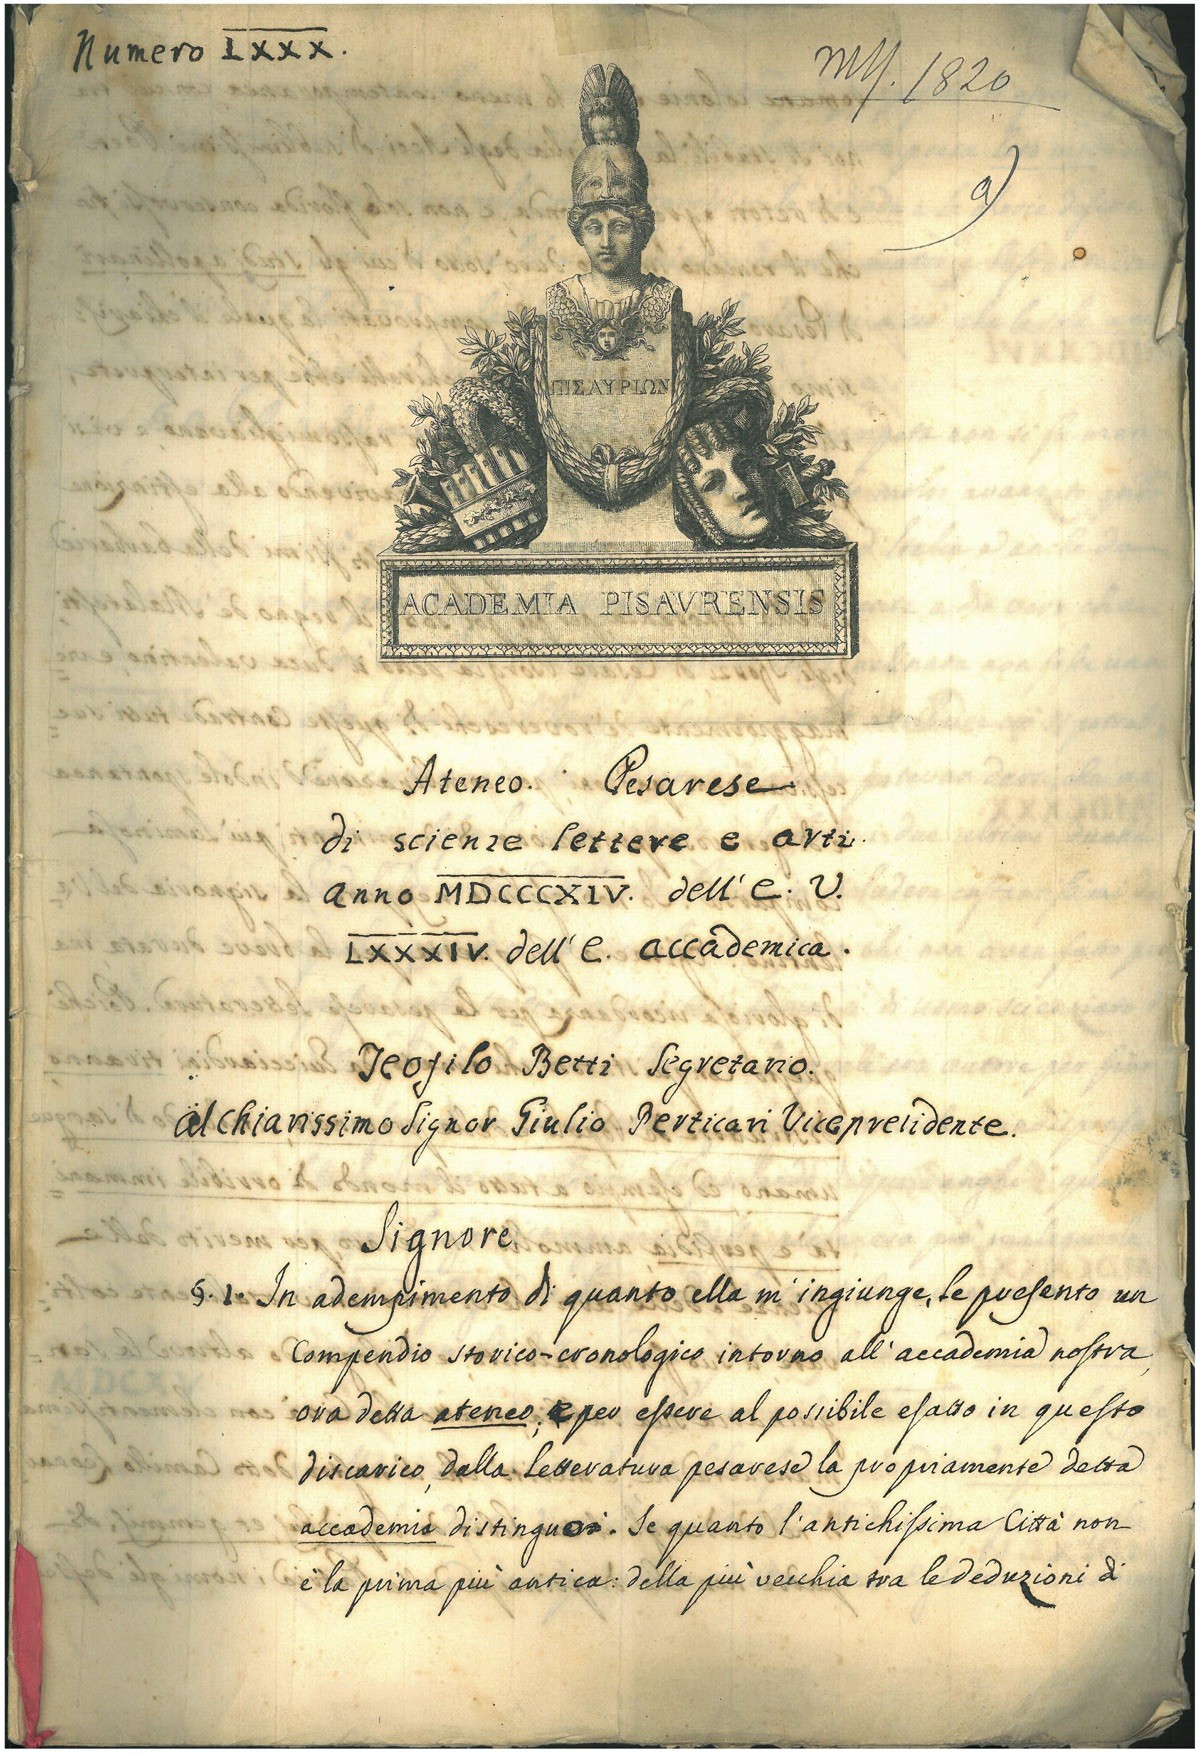 Numero LXXX.
MS. 1820
a)
ΠΙΣΑΥΡΙΩΝ
ACADEMIA PISAVRENSIS
Ateneo. Pesarese
di scienze lettere e arti.
Anno MDCCCXIV. dell' E. V.
LXXXIV. dell' E. accademica.
Teofilo Betti Segretario.
Al chiarissimo Signor Giulio Perticari Vicepresidente.
Signore
§. 1. In adempimento di quanto ella m' ingiunge, le preſento un
Compendio storico-cronologico intorno all' accademia noſtra,
ora detta ateneo, e per eſſere al poſsibile eſatto in queſto
discarico, dalla letteratura pesarese la propriamente detta
accademia distinguo. Se quanto l'antichiſsima Città non
è la prima più antica: della più vecchia tra le deduzioni di